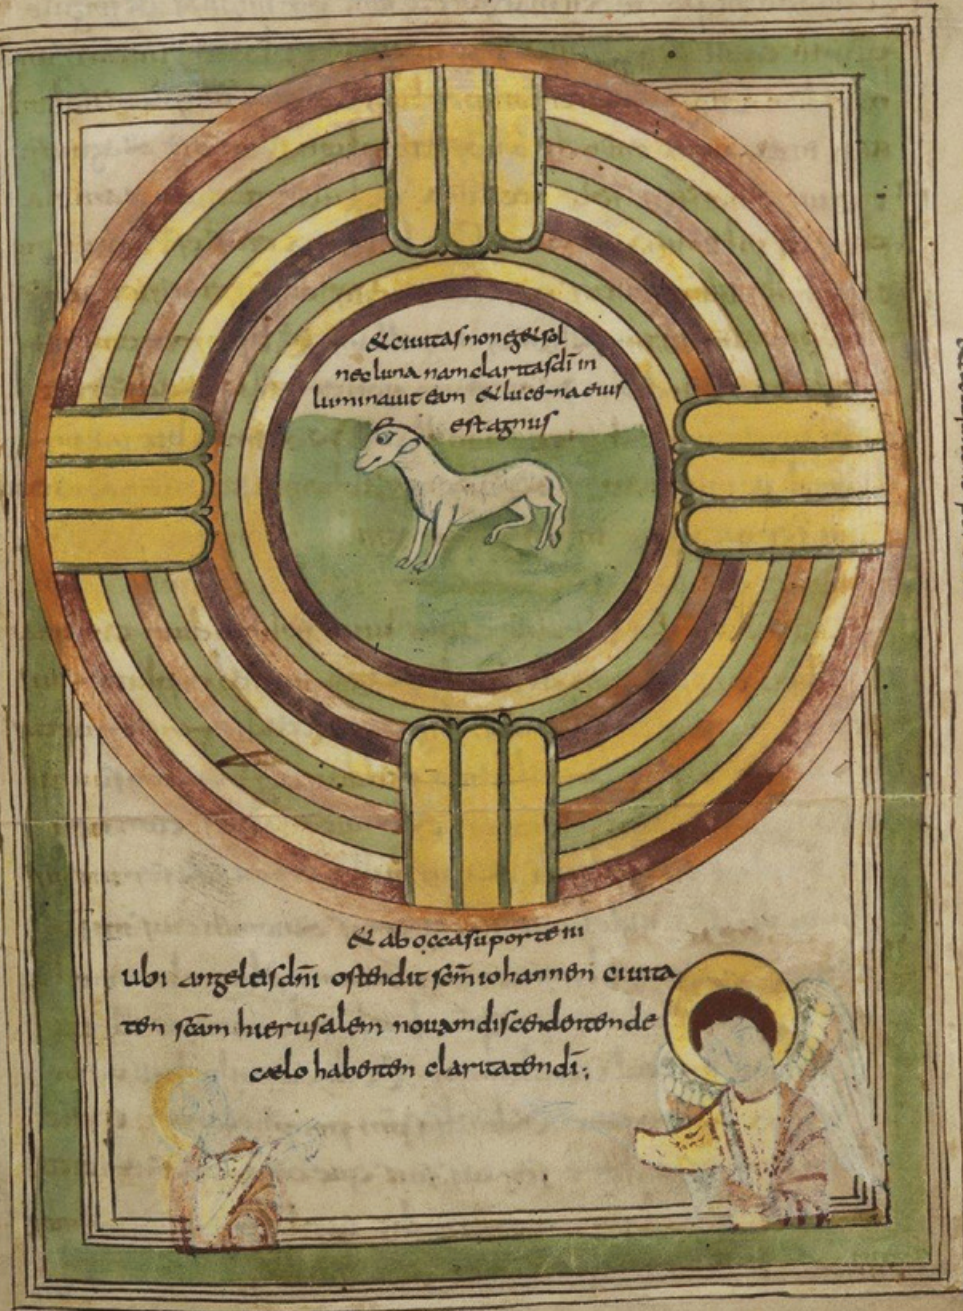 & ciuitas non eg& sol
nec luna nam claritas dī in
luminauit eam & lucerna eius
est agnus
& ab occasu porte iii
ubi angelus dn̄i ostendit sc̄m iohannen ciuita
ten sc̄am hierusalem nouam discendenten de
cælo habenten claritaten dī:,